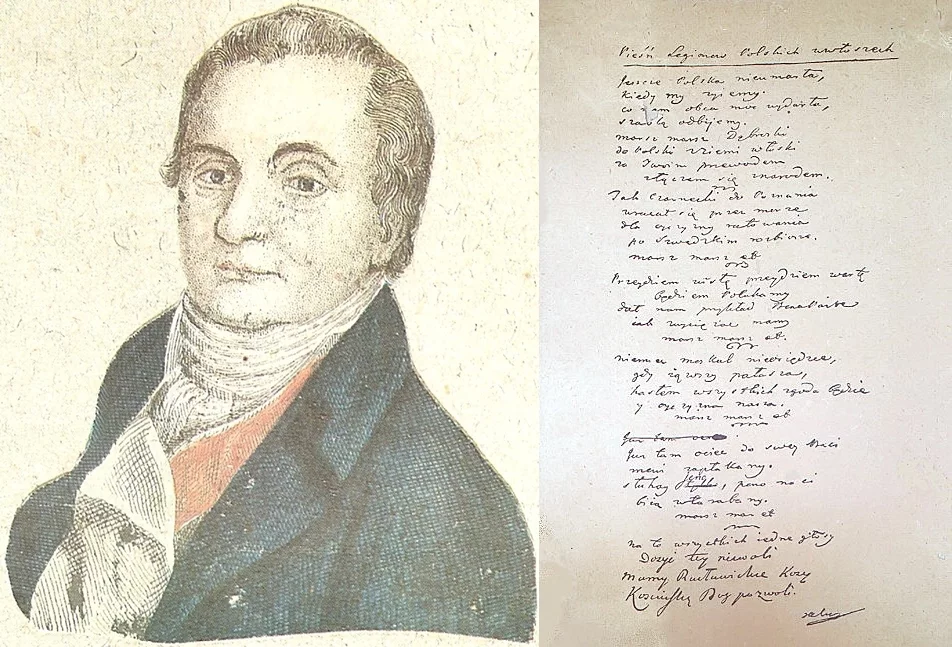 Pieśń Legionów Polskich we Włoszech
Jeszcze Polska nie umarła,
kiedy my żyiemy.
co nam obca moc wydarła,
szablą odbijemy.
marsz marsz Dąbroski
do Polski z ziemi włoski
za Twoim przewodem
złączem się z narodem.
Jak Czarnecki do Poznania
wracał się przez morze
dla oyczyzny ratowania
po Szwedzkim rozbiorze.
marsz marsz etc
Przejdziem Wisłę przejdziem Wartę
będziem Polakamy
dał nam przykład Bonaparte
iak zwyciężać mamy
marsz marsz etc.
niemiec moskal nie osiędzie,
gdy iąwszy pałasza,
hasłem wszystkich zgoda będzie
y oyczyzna nasza.
marsz marsz etc
Już tam
Już tam ociec do swey Basi
mówi zapłakany.
słuchay jeno, pono nasi
biią w tarabany.
marsz marsz etc
na to wszystkich iedne głosy
Dosyć tey niewoli
Mamy Racławickie Kosy
Kosciuszkę Bóg pozwoli.